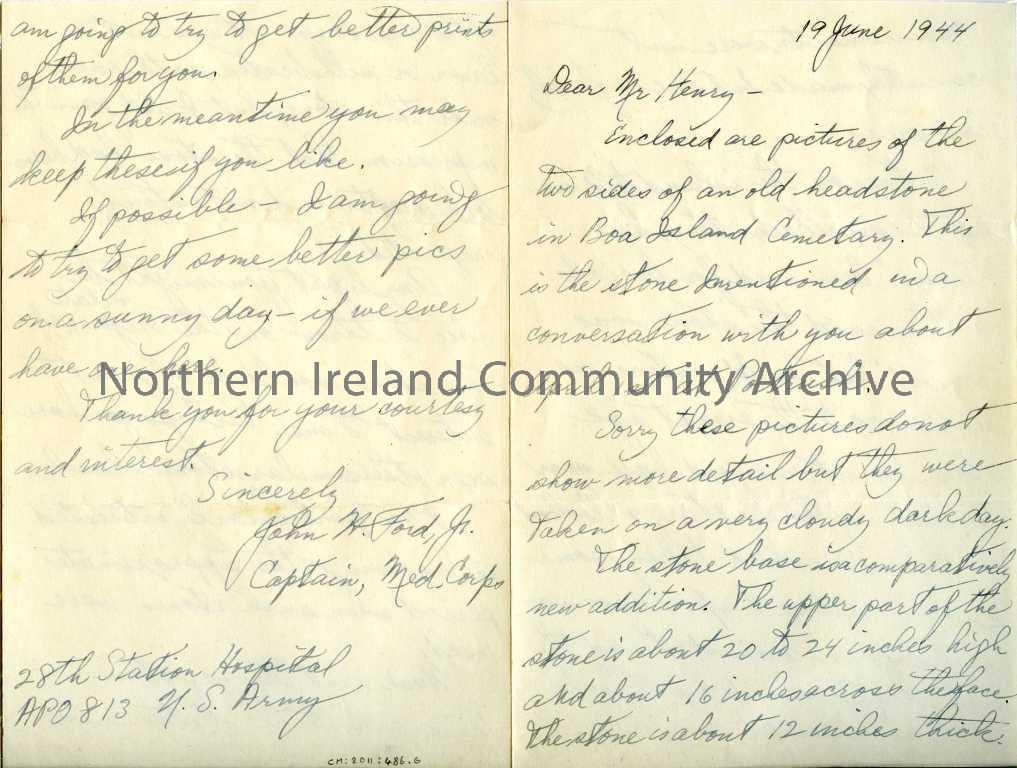 19 June 1944
Dear Mr Henry –
Enclosed are pictures of the
two sides of an old headstone
in Boa Island Cemetary. This
is the stone I mentioned in a
conversation with you about
April 1st at Portrush.
Sorry these pictures do not
show more detail but they were
taken on a very cloudy dark day.
The stone base is a comparatively
new addition. The upper part of the
stone is about 20 to 24 inches high
and about 16 inches across the face.
The stone is about 12 inches thick.
am going to try to get better prints
of them for you.
In the meantime you may
keep these if you like.
If possible – I am going
to try to get some better pics
on a sunny day – if we ever
have one here.
Thank you for your courtesy
and interest.
Sincerely
John H. Ford, Jr.
Captain, Med. Corps
28th Station Hospital
APO 813 U. S. Army
CM:2011:486.6
Northern Ireland Community Archive